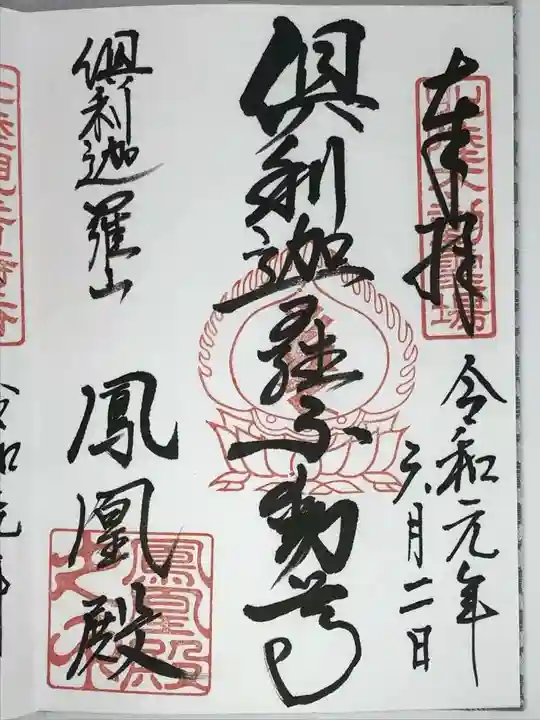 奉拝
令和元年
六月二日
倶利迦羅不動尊
倶利迦羅山
鳳凰殿
鳳凰殿
令和元年